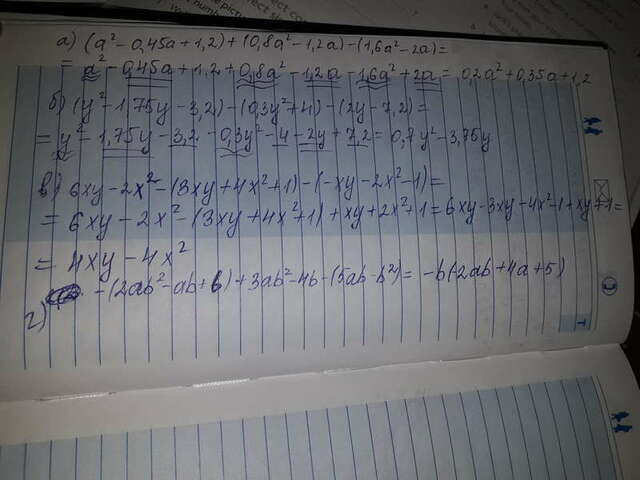 а) (a²-0,45a+1,2)+(0,8a²-1,2a)-(1,6a²-2a)=
= a²-0,45a+1,2+0,8a²-1,2a-1,6a²+2a = 0,2a²+0,35a+1,2
б) (y²-1,75y-3,2)-(0,3y²+4)-(2y-7,2)=
= y²-1,75y-3,2-0,3y²-4-2y+7,2=0,7y²-3,75y
в) 6xy-2x²-(3xy+4x²+1)-(-xy-2x²-1)=
= 6xy-2x²-(3xy+4x²+1)+xy+2x²+1=6xy-3xy-4x²-1+xy+1=
= 4xy-4x²
г) -(2ab²-ab+b)+3ab²-4b-(5ab-b²)= -b(-2ab+4a+5)